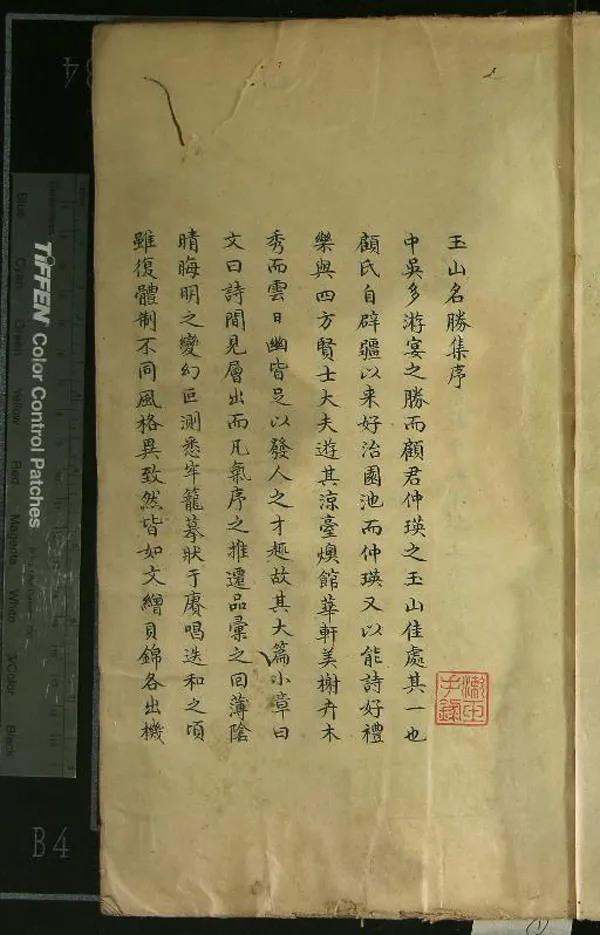 玉山名勝集序
中吳多游宴之勝而顧君仲瑛之玉山佳處其一也
顧氏自辟疆以来好治園池而仲瑛又以能詩好禮
樂與四方賢士大夫遊其涼臺燠館華軒美榭卉木
秀而雲日幽皆足以發人之才趣故其大篇小章曰
文曰詩間見層出而凡氣序之推遷品彙之回薄陰
晴晦明之變幻叵測悉牢籠摹狀于賡唱迭和之頃
雖復體制不同風格異致然皆如文繒貝錦各出機
TIFFEN Color Control Patches
Blue Cyan Green Yellow Red Magenta White 3/Color Black
B4
(1)